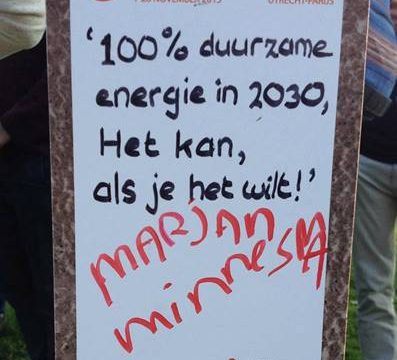 NOVEMBER 2015
UTRECHT-PARIJS
'100% duurzame
energie in 2030,
Het kan,
als je het wilt!'
MARJAN
minnesMA